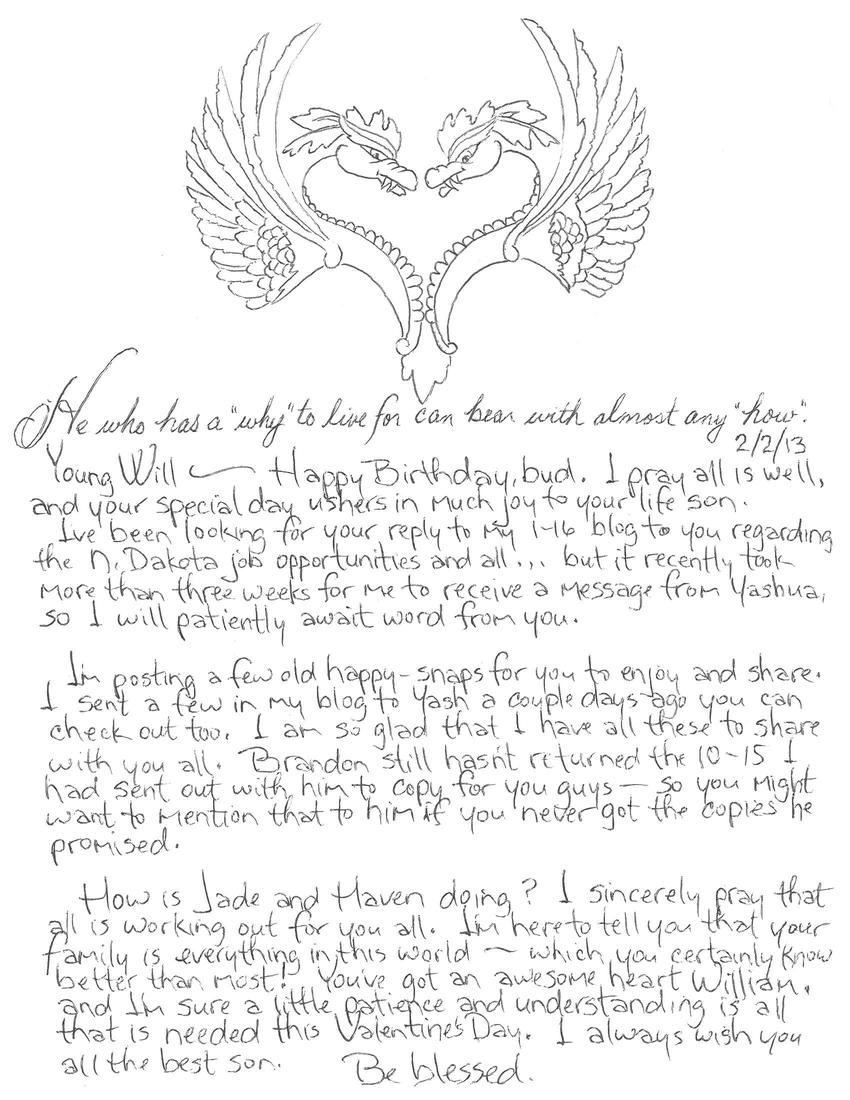 He who has a "why" to live for can bear with almost any "how".
2/2/13
Young Will — Happy Birthday, bud. I pray all is well,
and your special day ushers in much joy to your life son.
I've been looking for your reply to my 1-16 blog to you regarding
the N. Dakota job opportunities and all... but it recently took
more than three weeks for me to receive a message from Yashua,
so I will patiently await word from you.
I'm posting a few old happy-snaps for you to enjoy and share.
I sent a few in my blog to Yash a couple days ago you can
check out too. I am so glad that I have all these to share
with you all. Brandon still hasn't returned the 10-15 I
had sent out with him to copy for you guys — so you might
want to mention that to him if you never got the copies he
promised.
How is Jade and Haven doing? I sincerely pray that
all is working out for you all. I'm here to tell you that your
family is everything in this world ~ which you certainly know
better than most! You've got an awesome heart William,
and I'm sure a little patience and understanding is all
that is needed this Valentine's Day. I always wish you
all the best son. Be blessed.